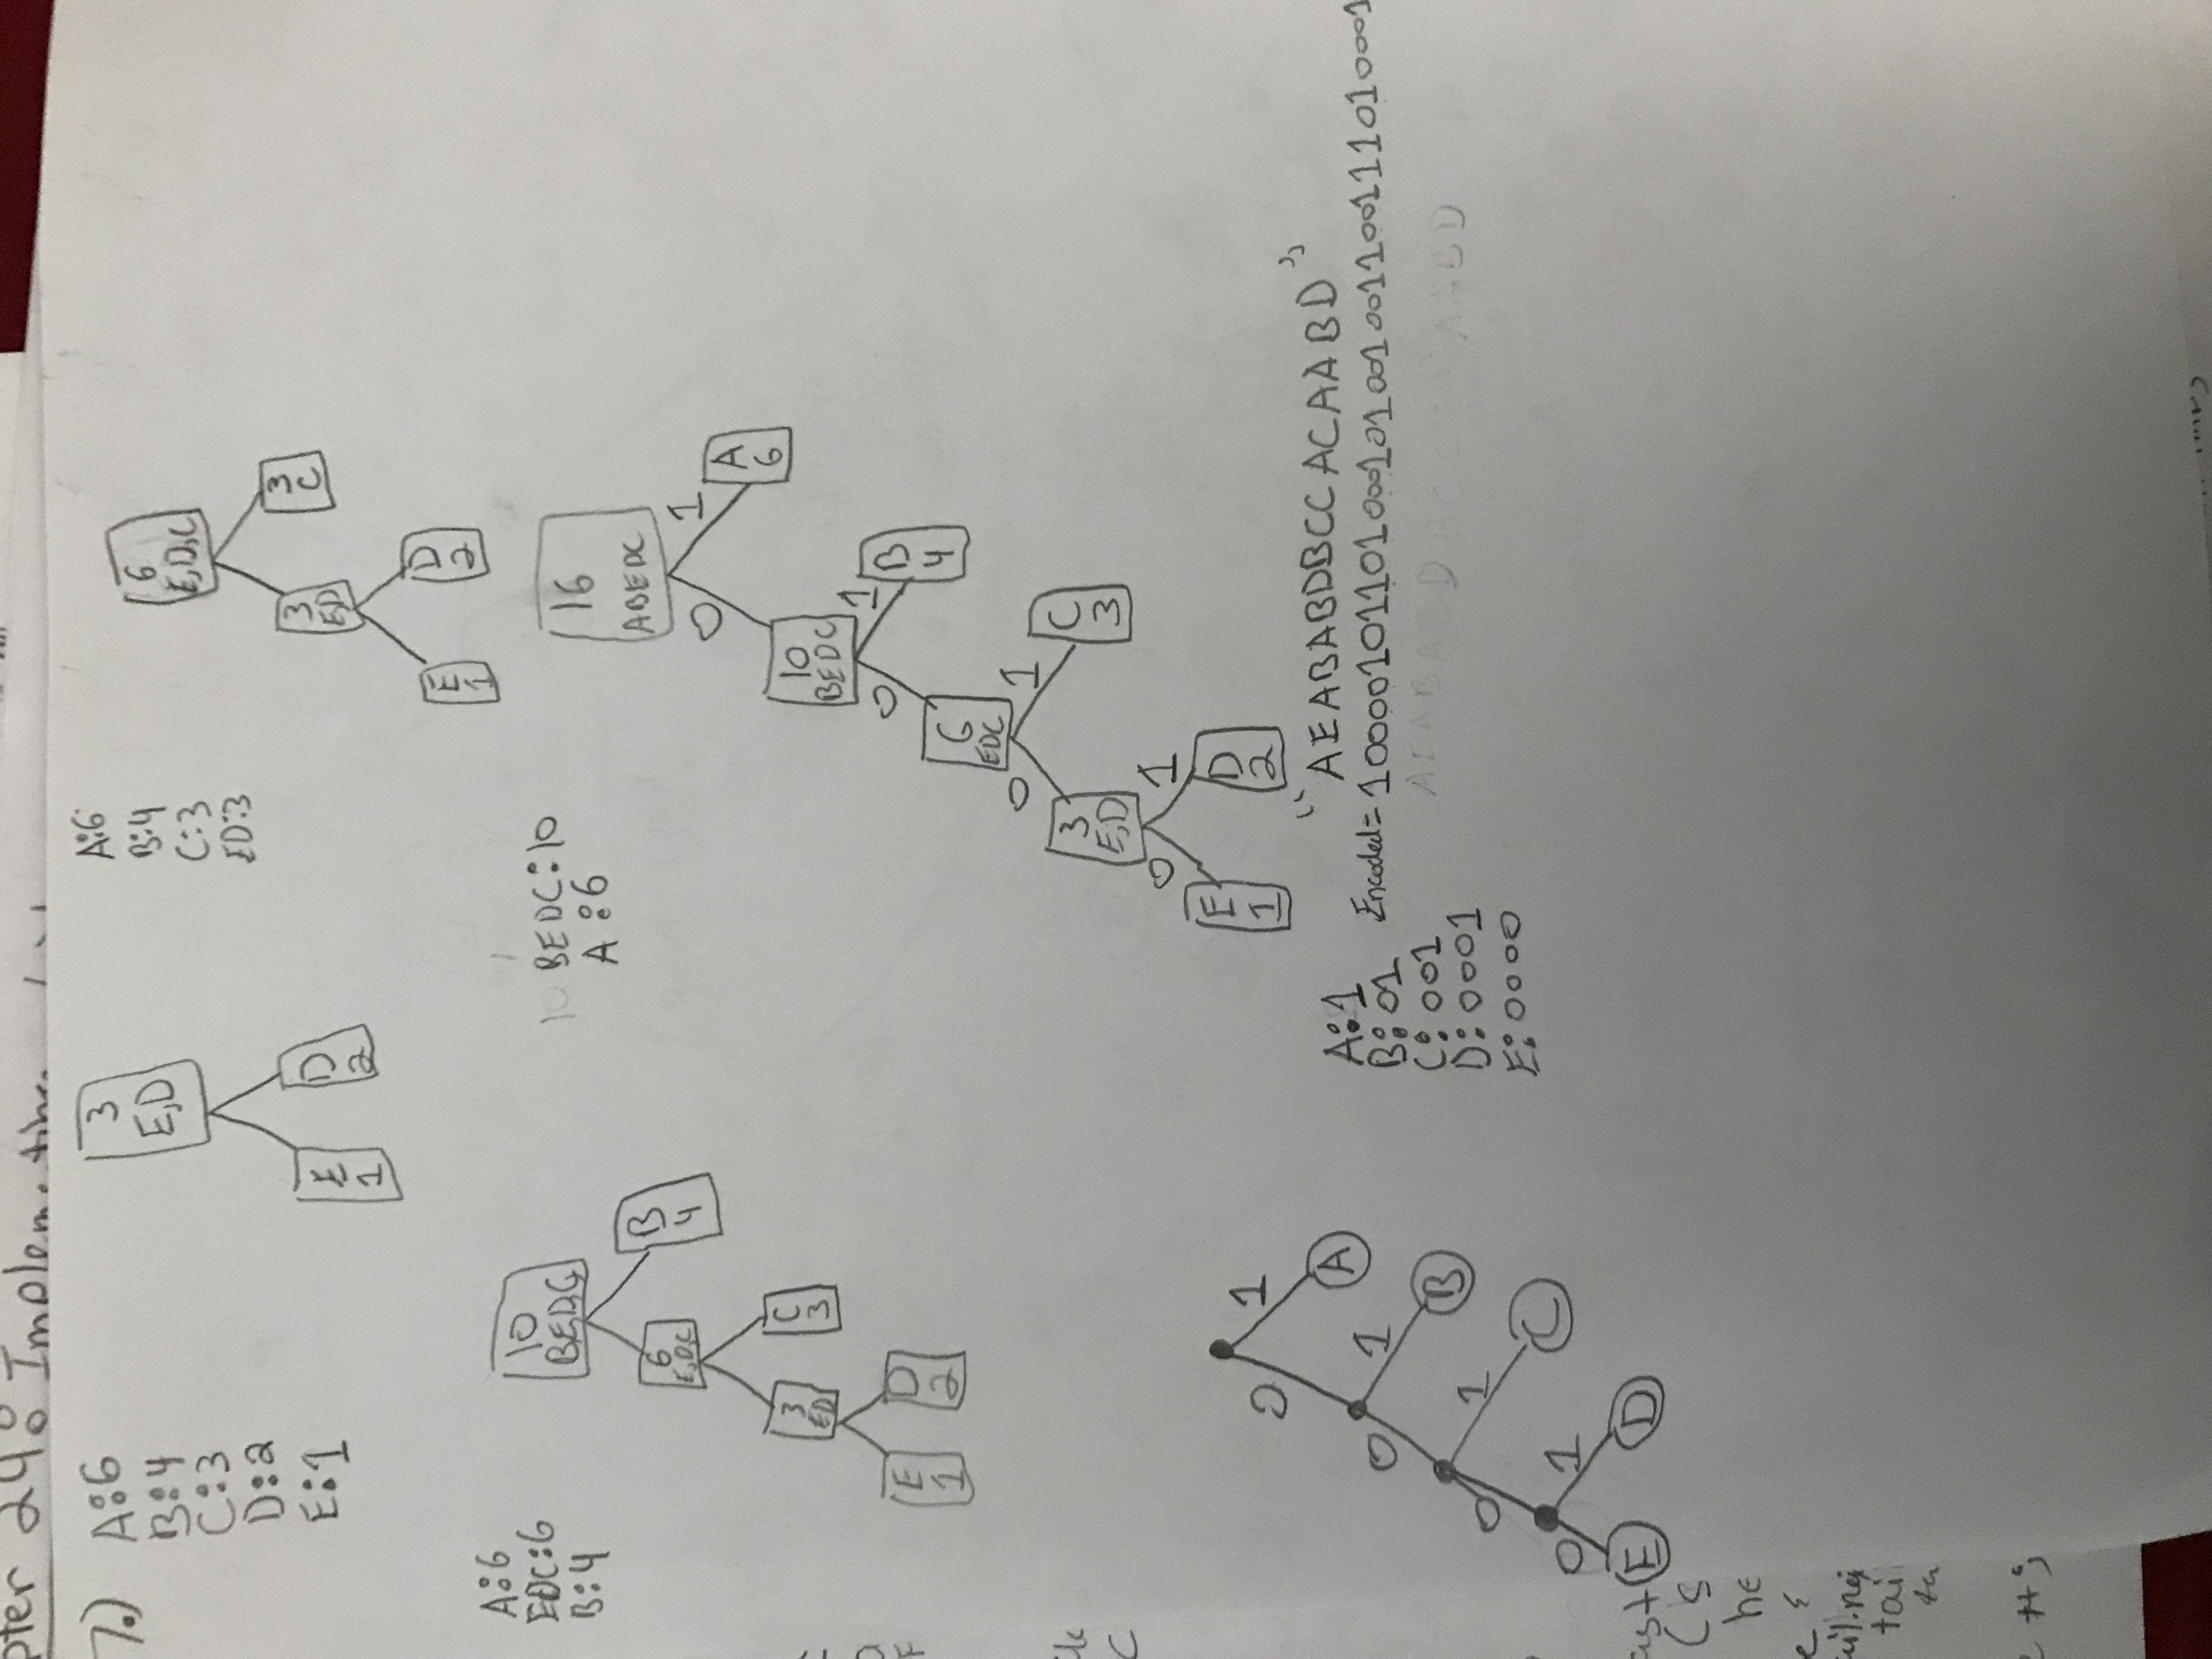 pter 24: Implem
7.) A:6
B:4
C:3
D:2
E:1
3
E,D
E
1
D
2
A:6
B:4
C:3
ED:3
6
E,D,C
3
ED
3
C
E
1
D
2
A:6
EDC:6
B:4
10
BEDC
6
E,D,C
B
4
3
ED
C
3
E
1
D
2
10 BEDC:10
A:6
16
ABEDC
0 1
A
6
10
BEDC
0 1
B
4
6
EDC
0 1
C
3
3
E,D
0 1
E
1
D
2
0 1
A
0 1
B
0 1
C
0 1
E D
A:1
B:01
C:001
D:0001
E:0000
"AEABABDBCCACAABD"
Encoded= 10000101101000101001001100111010001
AEABAB D AABD
C
(s
he
tai
++;